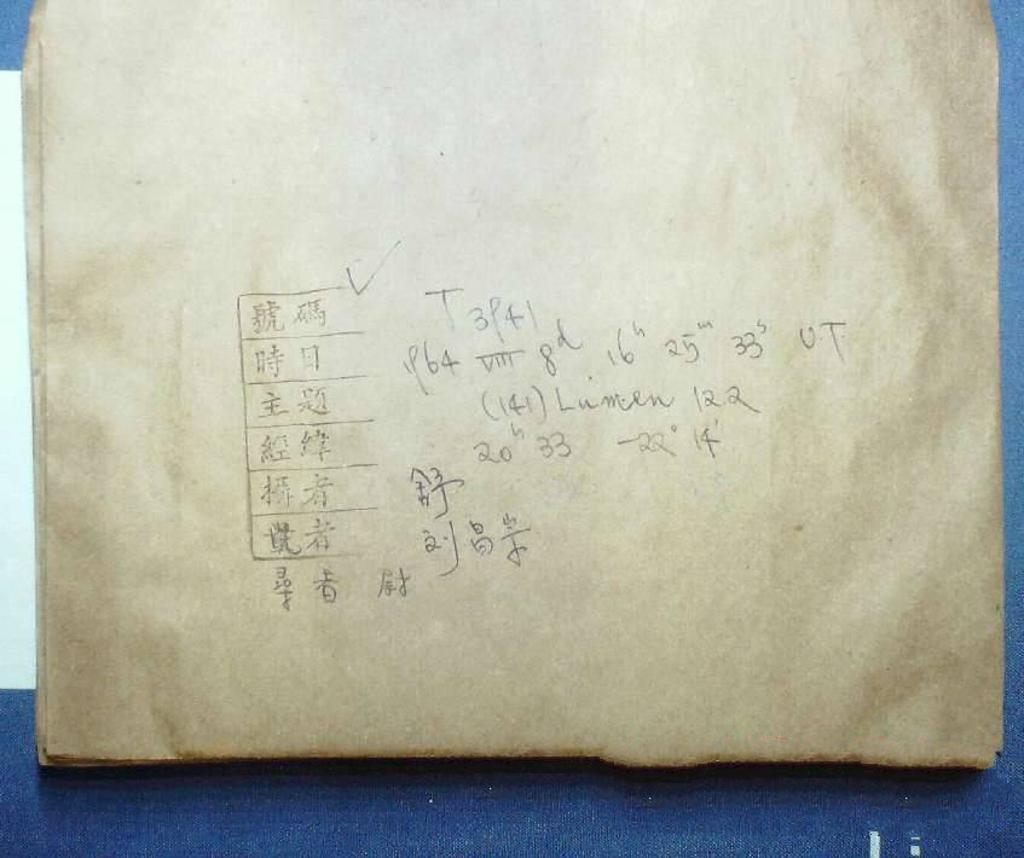 號碼 T 3941
時日 1964 VIII 8d 16h 25m 33s UT
主題 (141) Lumen 122
經緯 20h 33 -22° 14'
攝者 舒
覽者 刘昌荣
尋者 尉